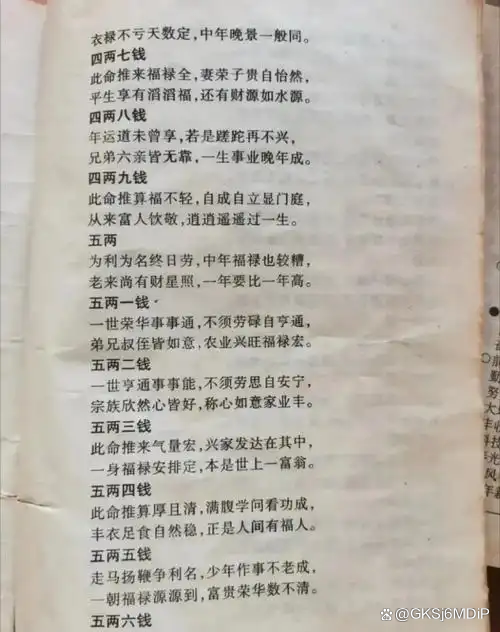 衣禄不亏天数定,中年晚景一般同。
四两七钱
此命推来福禄全,妻荣子贵自怡然,
平生享有滔滔福,还有财源如水源。
四两八钱
年运道未曾享,若是蹉跎再不兴,
兄弟六亲皆无靠,一生事业晚年成。
四两九钱
此命推算福不轻,自成自立显门庭,
从来富人饮敬,逍遥遥过一生。
五两
为利为名终日劳,中年福禄也较糟,
老来尚有财星照,一年要比一年高。
五两一钱
一世荣华事事通,不须劳碌自亨通,
弟兄叔侄皆如意,农业兴旺福禄宏。
五两二钱
一世亨通事事能,不须劳思自安宁,
宗族欣然心皆好,称心如意家业丰。
五两三钱
此命推来气量宏,兴家发达在其中,
一身福禄安排定,本是世上一富翁。
五两四钱
此命推算厚且清,满腹学问看功成,
丰衣足食自然稳,正是人间有福人。
五两五钱
走马扬鞭争利名,少年作事不老成,
一朝福禄源源到,富贵荣华数不清。
五两六钱
勤
努
大
丰收
科技
光
风
年
@GKSj6MDiP